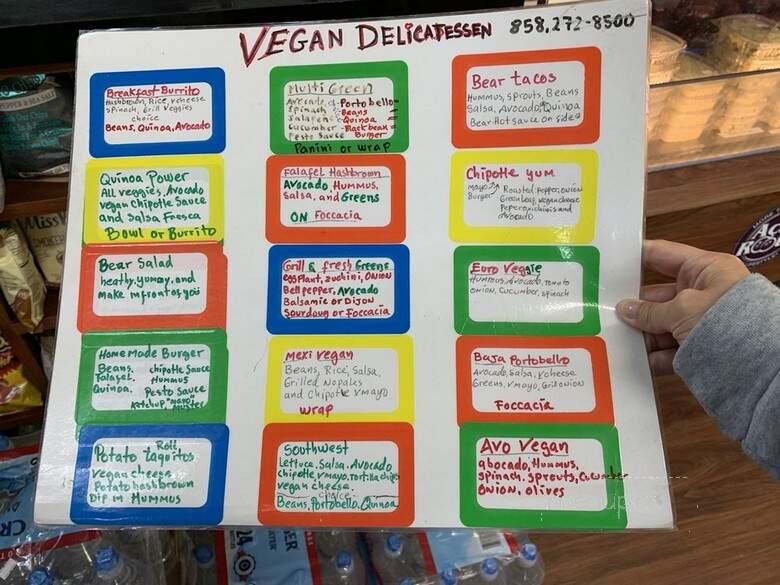 VEGAN DELICATESSEN 858.272-8500
Breakfast Burrito
Hashbrown, Rice, vcheese
Spinach, Grill Veggies
choice
Beans, Quinoa, Avocado
Multi Green
Avocado
Spinach
Jalapeno
Cucumber
Pesto Sauce
Portobello
-Beans
-Quinoa
-Blackbean
Burger
Panini or wrap
Bear tacos
Hummus, sprouts, Beans
Salsa, Avocado, Quinoa
Bear Hot sauce on side
Quinoa Power
All veggies, Avocado
vegan Chipotle Sauce
and Salsa Fresca
Bowl or Burrito
Falafel Hashbrown
Avocado, Hummus,
Salsa, and Greens
ON Foccacia
Chipotle yum
mayo
Burger
Roasted pepper, onion
Green leaf, vegan cheese
Avocado
Bear Salad
heathy, yummy, and
make infront of you
Grill & fresh Greens
eggplant, zuchini, onion
Bell pepper, Avocado
Balsamic or Dijon
Sourdoug or Foccacia
Euro Veggie
Hummus, Avocado, tomato
onion, Cucumber, spinach
Home Made Burger
Beans,
Falafel,
Quinoa,
chipotle Sauce
Hummus
Pesto Sauce
Ketchup, "mayo"
Mexi Vegan
Beans, Rice, Salsa,
Grilled Nopales
and Chipotle vmayo
wrap
Baja Portobello
Avocado, Salsa, vcheese
Greens, vmayo, Grill onion
Foccacia
Potato Roll taquitos
Vegan cheese
Potato hashbrown
Dip in Hummus
Southwest
Lettuce, Salsa, Avocado
Chipotle, vmayo, tortilla chips
vegan cheese.
choice
Beans, Portobello, Quinoa
Avo Vegan
abocado, Hummus,
spinach, sprouts, Cucumber
onion, olives